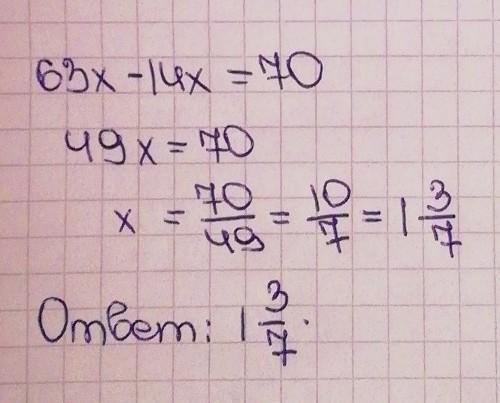 63x - 14x = 70
49x = 70
x = 70/49 = 10/7 = 1 3/7
Ответ: 1 3/7.